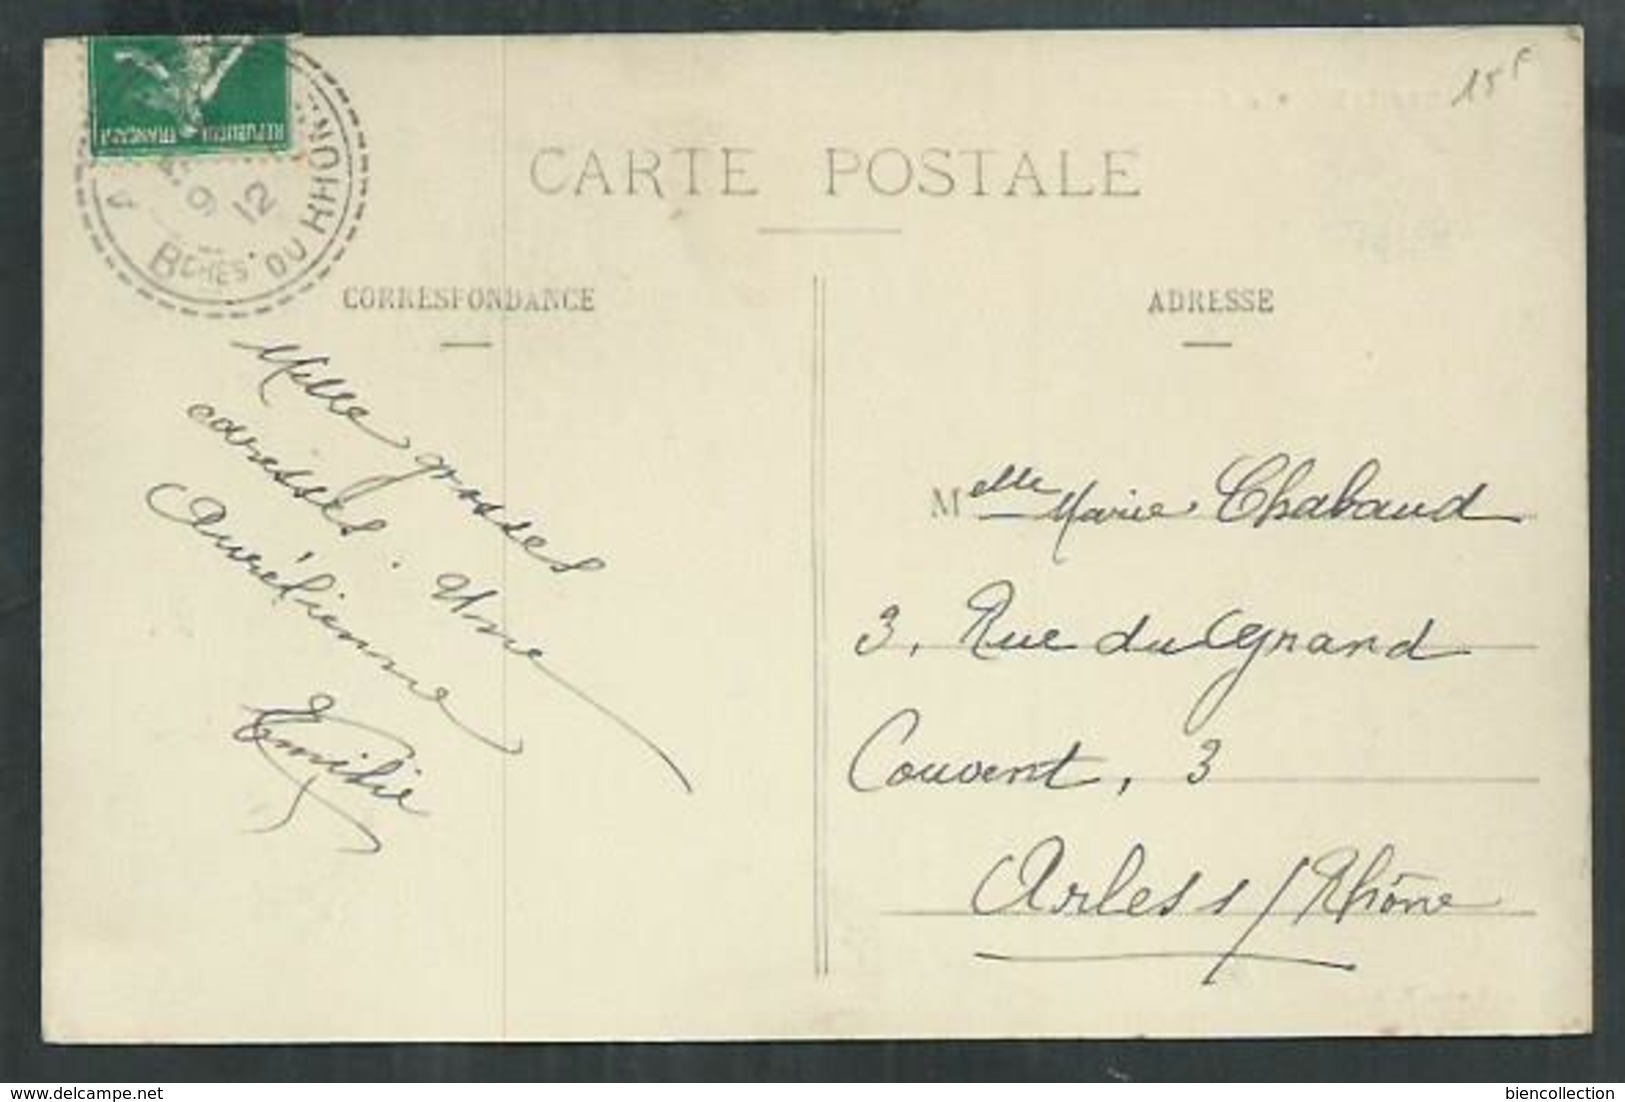 15 F
CARTE POSTALE
REPUBLIQUE FRANÇAISE
9
12
BCHES DU RHONE
CORRESPONDANCE
ADRESSE
Mille grosses
caresses. Une
Aurélienne
Emilie
Melle Marie Chabaud
3, Rue du Grand
Couvent, 3
Arles s/Rhône
www.delcampe.net
biencollection